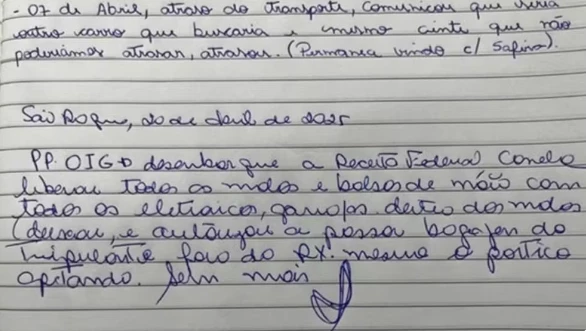 - 07 de Abril, atraso do transporte, comunicou que viria
outro carro que buscaria e mesmo ciente que não
poderíamos atrasar, atrasou. (Permanra vindo c/ Safira).
São Roque, 20 de abril de 2025
PP. OIG desembarque a Receita Federal Canela
liberou todos as malas e bolsas de mão com
todos os eletroicos, garrafas dentro das malas
(deixou, e autorizou a passar bagagem do
tripulante fora do RX. mesmo o portico
apitando. Sem mais